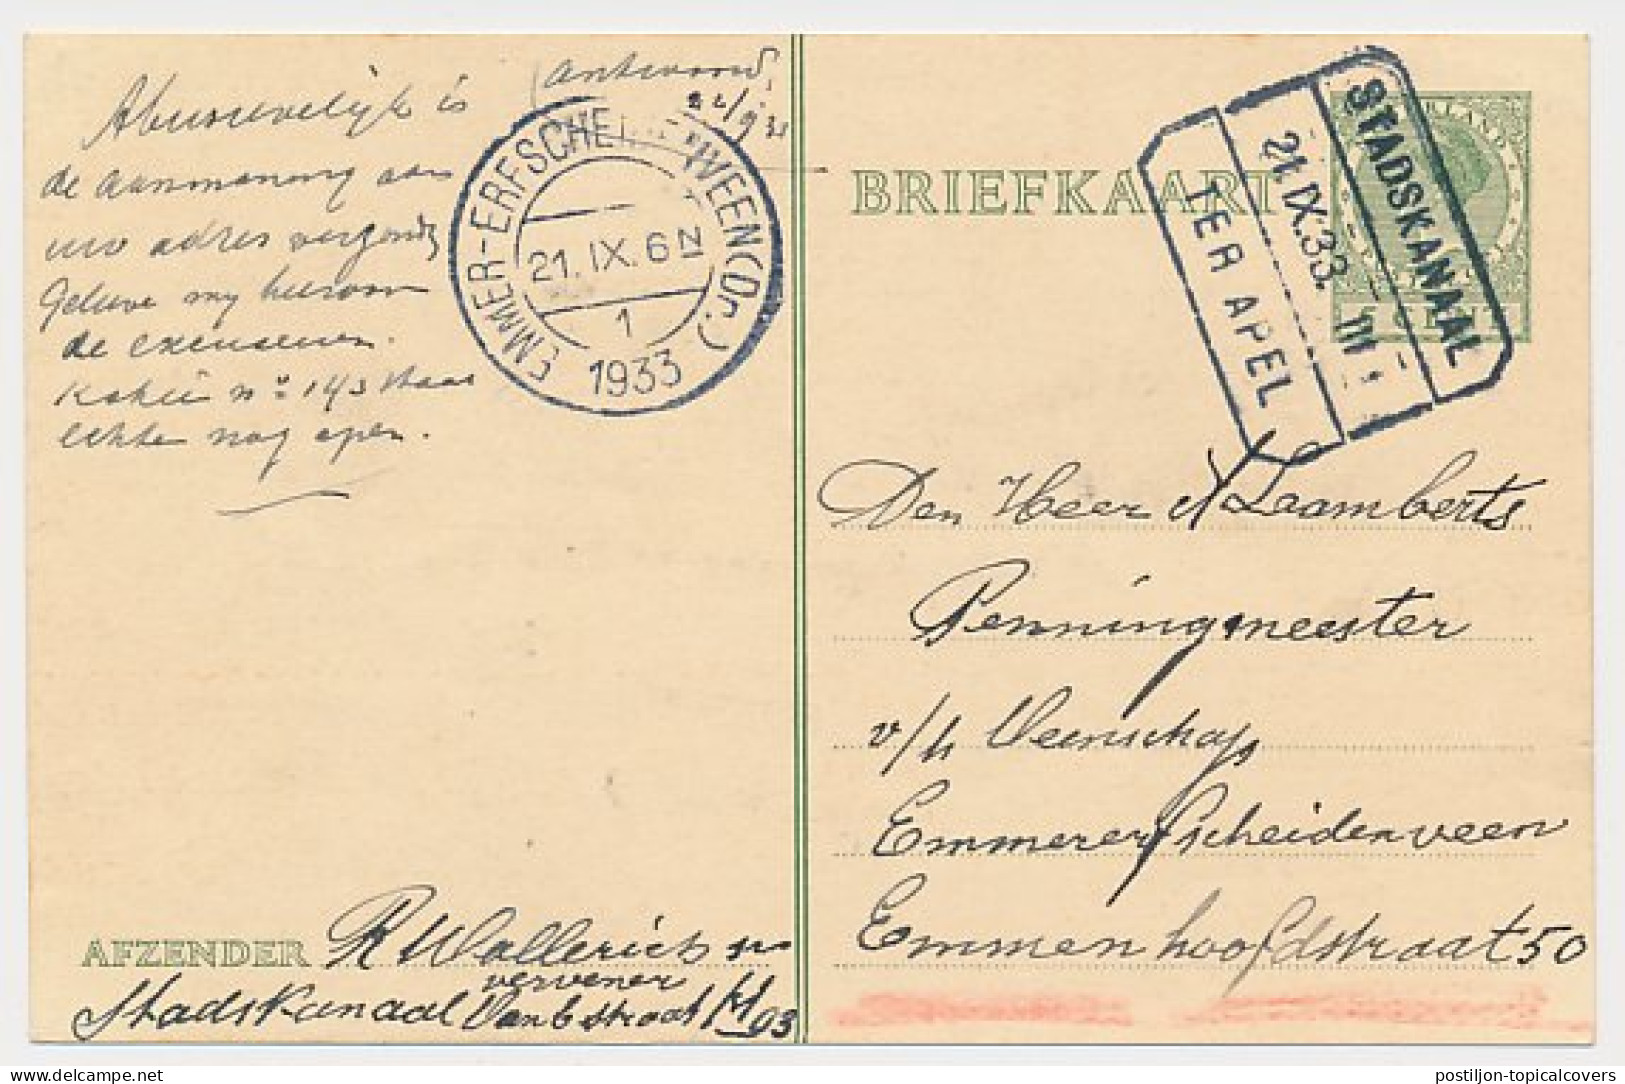 (antwoord,
22/9 33
Abusievelijk is
de aanmaning aan
uw adres
Gelieve my hiervoor
de excuseeren.
Kohier no 143 staat
echter nog open.
EMMER-ERFSCHEIDENVEEN (Dr.)
21.IX.6N
1
1933
AFZENDER R Wallerich
vervener
Stadskanaal
BRIEFKAART
STADSKANAAL
21.IX.33. III
TER APEL
CENT
Den Heer J Laamberts
Penningmeester
v/h Veenschap
Emmererfscheidenveen
Emmen hoofdstraat 50
postiljon-topicalcovers